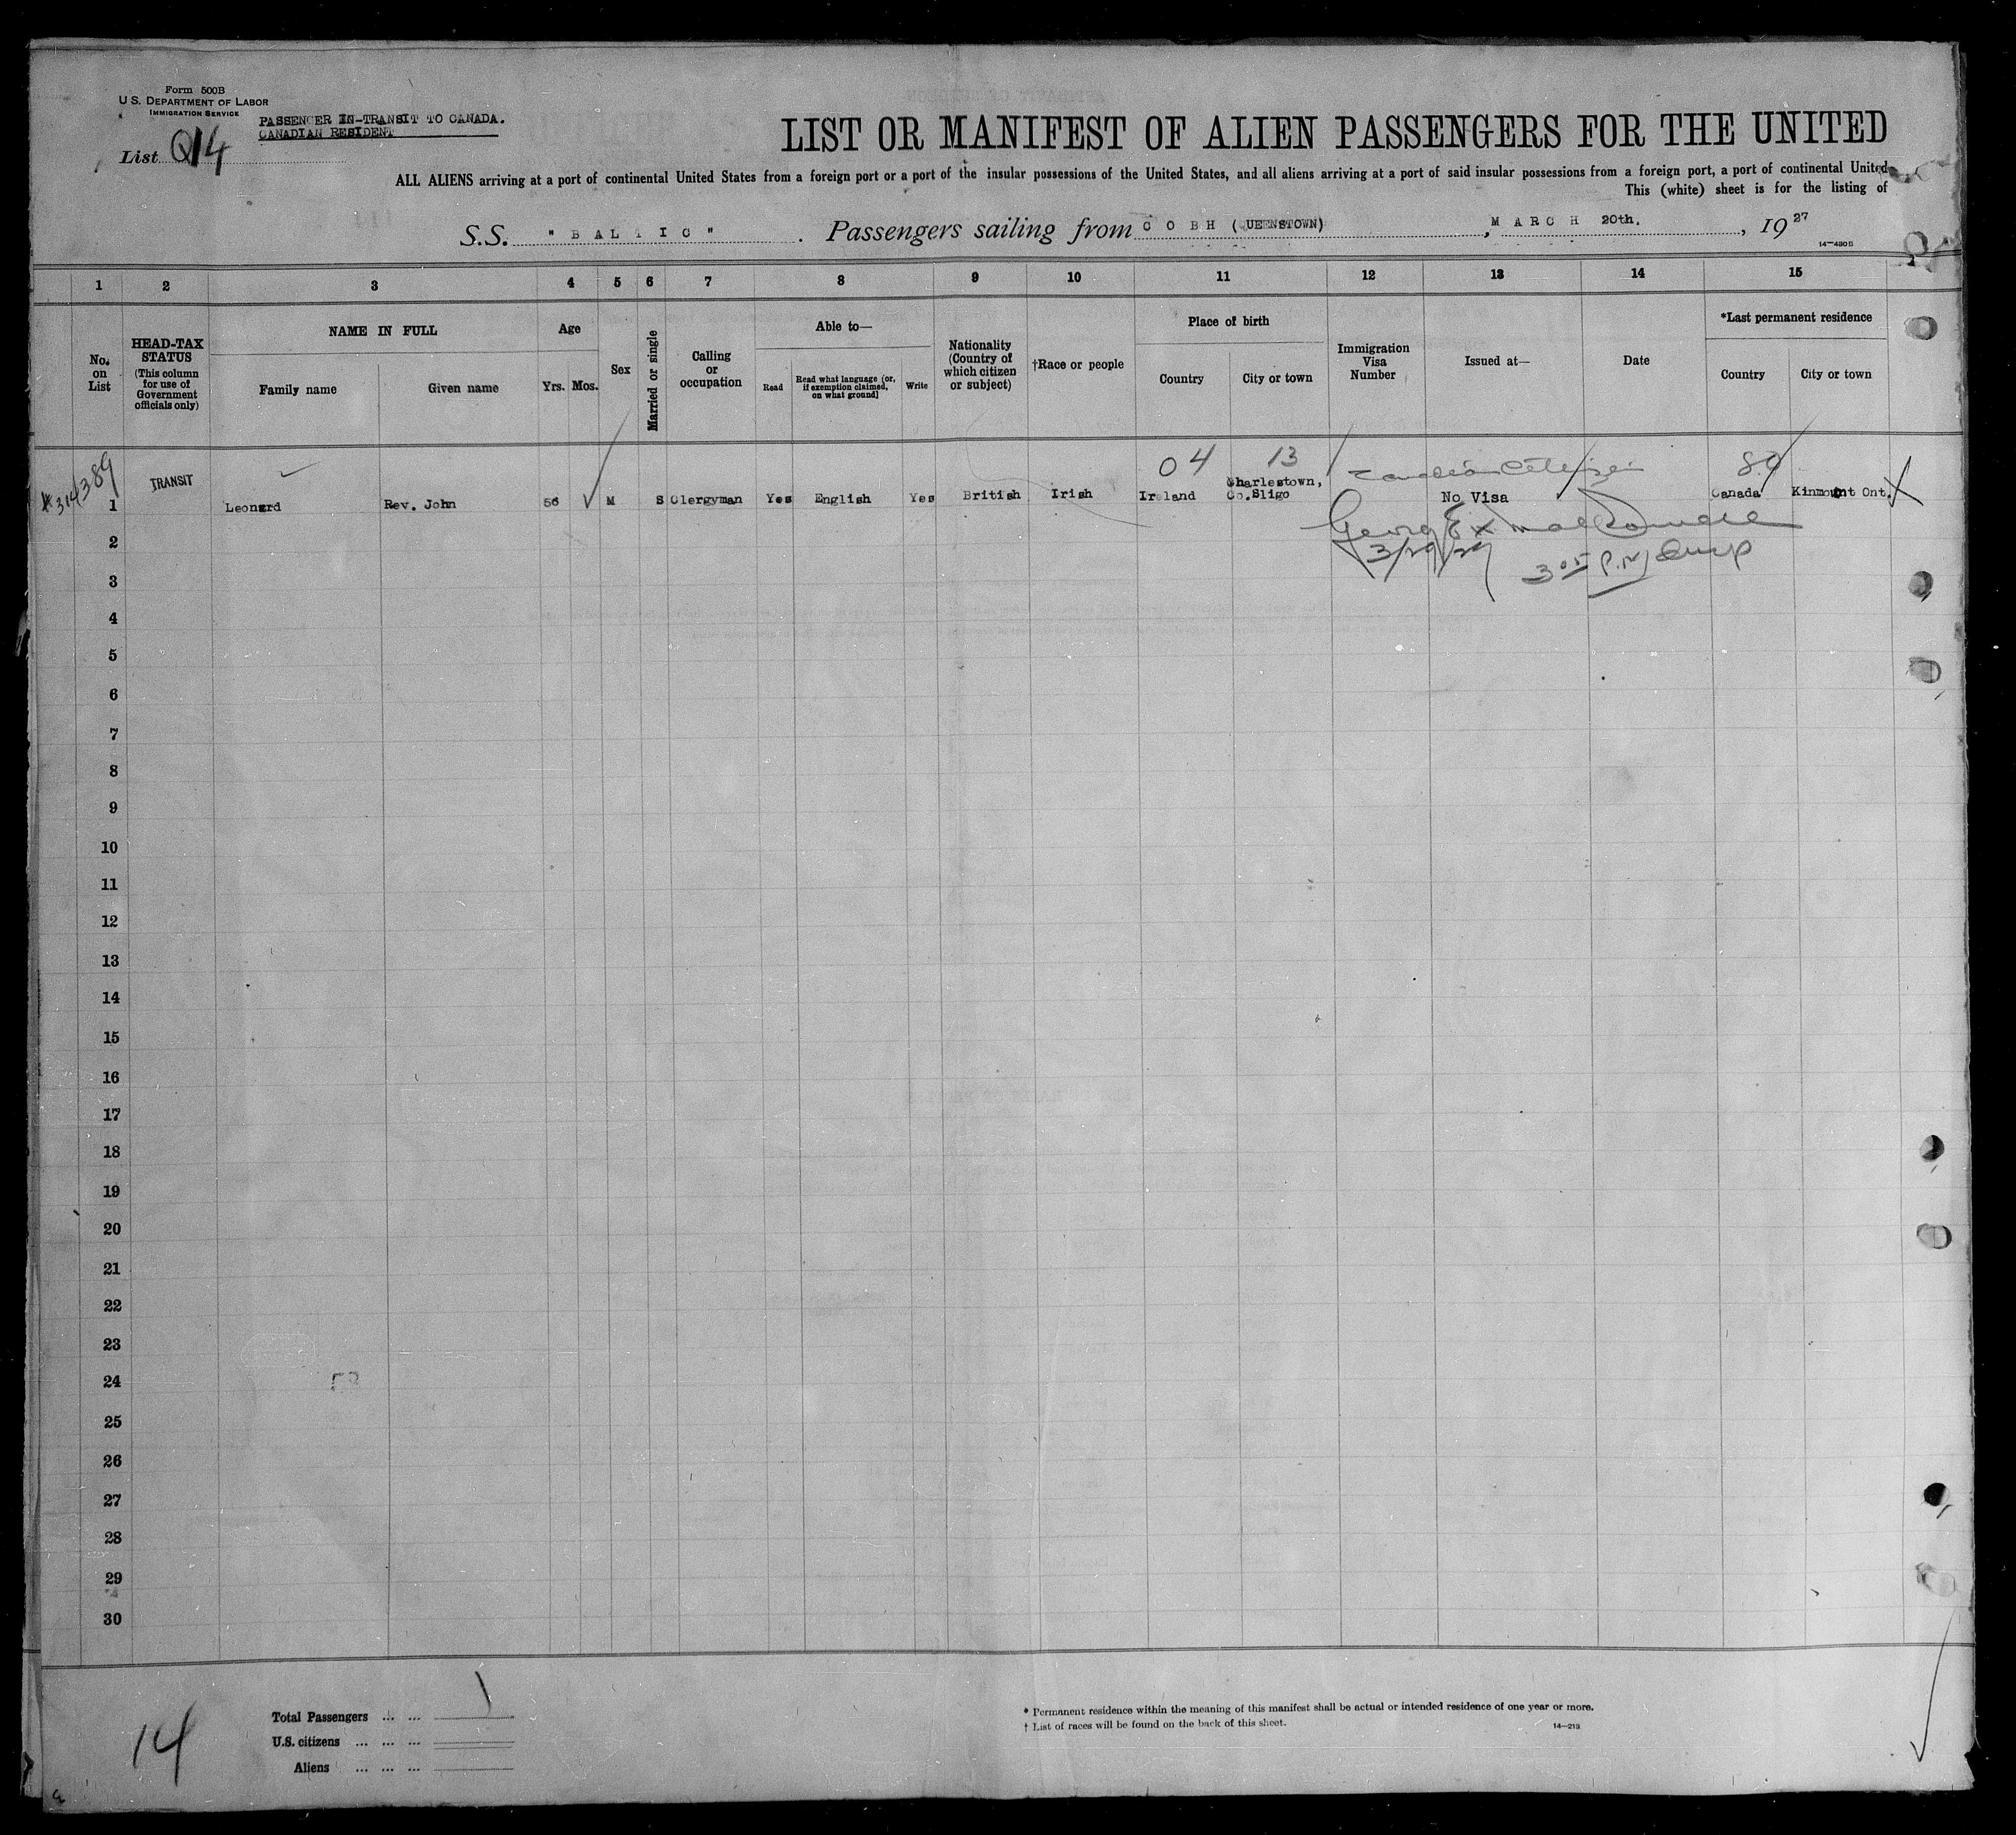 Form 500B
U.S. DEPARTMENT OF LABOR
IMMIGRATION SERVICE
PASSENGER IN-TRANSIT TO CANADA.
CANADIAN RESIDENT
List Q14
LIST OR MANIFEST OF ALIEN PASSENGERS FOR THE UNITED
ALL ALIENS arriving at a port of continental United States from a foreign port or a port of the insular possessions of the United States, and all aliens arriving at a port of said insular possessions from a foreign port, a port of continental United
This (white) sheet is for the listing of
S.S. "BALTIC". Passengers sailing from COBH (QUEENSTOWN), MARCH 20th., 1927
14—430B
1 2 3 4 5 6 7 8 9 10 11 12 13 14 15
No. on List
HEAD-TAX STATUS (This column for use of Government officials only)
NAME IN FULL
Family name Given name
Age
Yrs. Mos.
Sex
Married or single
Calling or occupation
Able to—
Read
Read what language [or, if exemption claimed, on what ground]
Write
Nationality (Country of which citizen or subject)
†Race or people
Place of birth
Country City or town
Immigration Visa Number
Issued at—
Date
*Last permanent residence
Country City or town
04 13 Canadian Citizen
314389
1 TRANSIT Leonard Rev. John 56 M S Clergyman Yes English Yes British Irish Ireland Charlestown, Co.Sligo No Visa Canada Kinmount Ont.
3/29/27 3 05 P.M.
2
3
4
5
6
7
8
9
10
11
12
13
14
15
16
17
18
19
20
21
22
23
24
25
26
27
28
29
30
14
Total Passengers ... ... 1
U.S. citizens ... ... ...
Aliens ... ... ...
* Permanent residence within the meaning of this manifest shall be actual or intended residence of one year or more.
† List of races will be found on the back of this sheet.
14—213